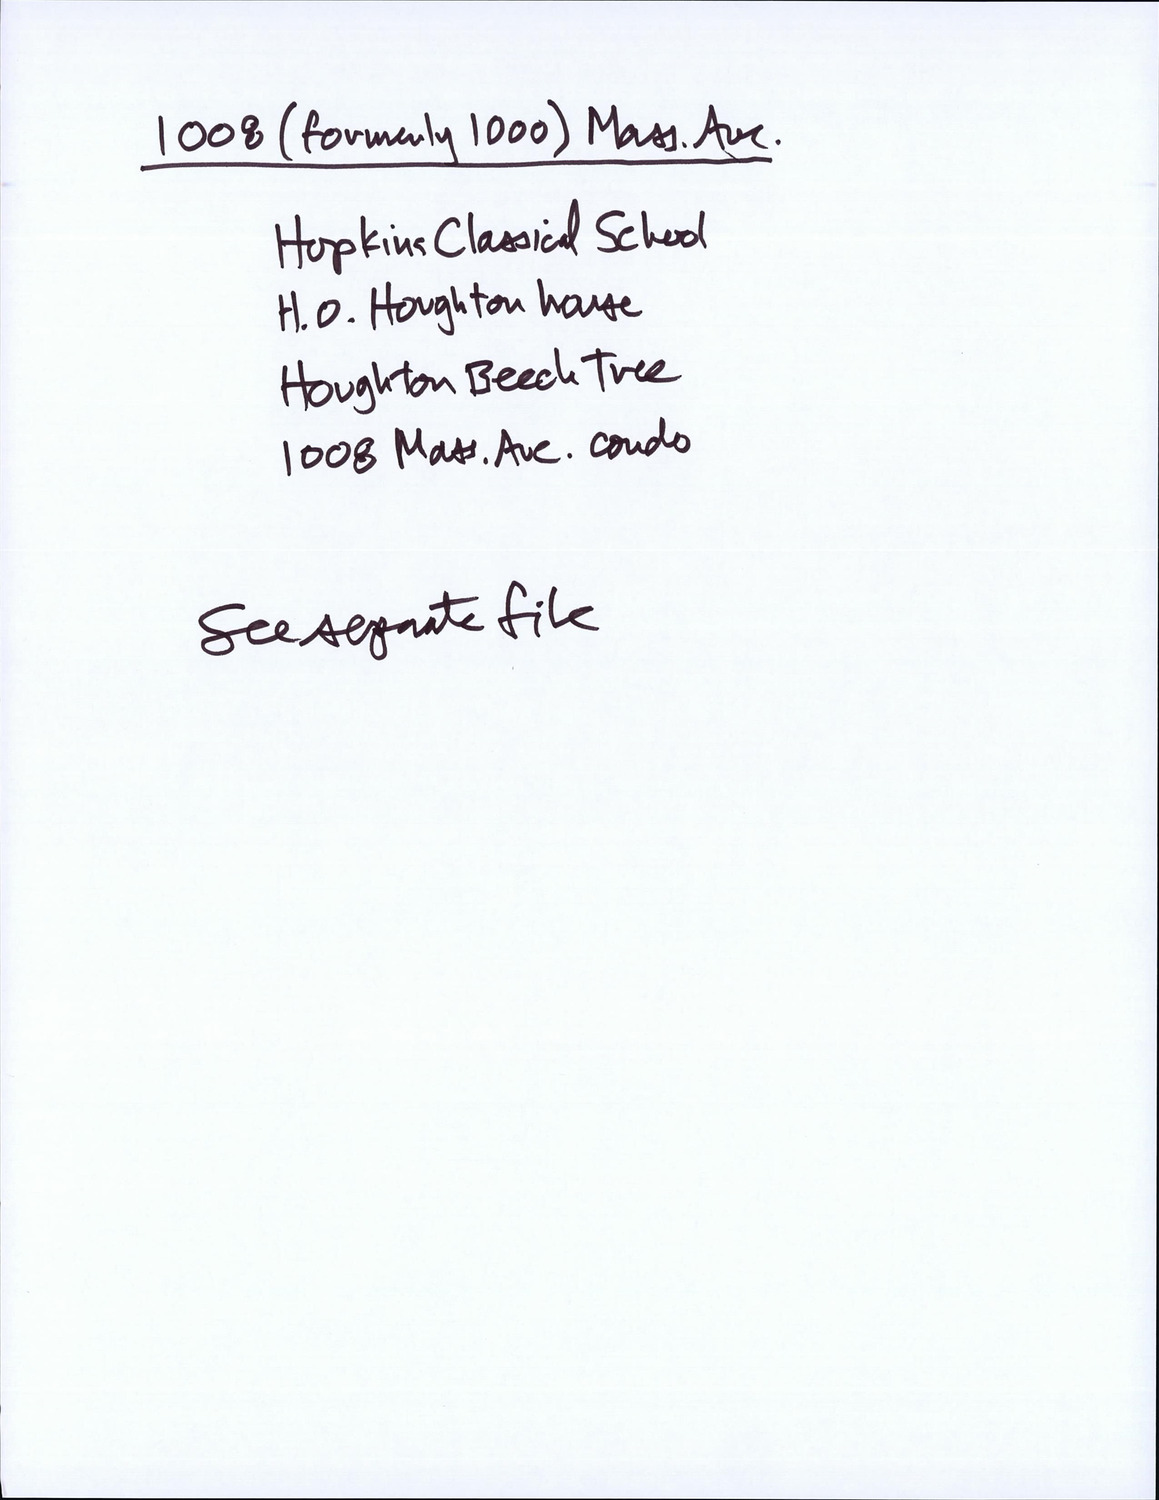 1008 (formerly 1000) Mass. Ave.
Hopkins Classical School
H.O. Houghton house
Houghton Beech Tree
1008 Mass. Ave. condo
See separate file